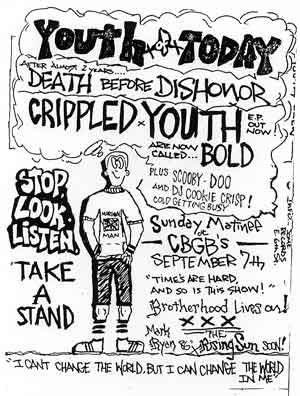 Youth of TODAY
AFTER ALMOST 2 YEARS....
DEATH BEFORE DISHONOR
CRIPPLED YOUTH E.P. OUT NOW!
ARE NOW CALLED... BOLD
PLUS SCOOBY-DOO
AND DJ COOKIE CRISP!
COLD GETTING BUSY
STOP, LOOK, LISTEN,
TAKE A STAND
MAN
Sunday Matinee
at CBGB's
SEPTEMBER 7th,
"TIMES ARE HARD,
AND SO IS THIS SHOW!"
Brotherhood Lives on!
XXX
Mark
Ryan &
THE Rising Sun soon!
"I CANT CHANGE THE WORLD, BUT I CAN CHANGE THE WORLD
IN ME"